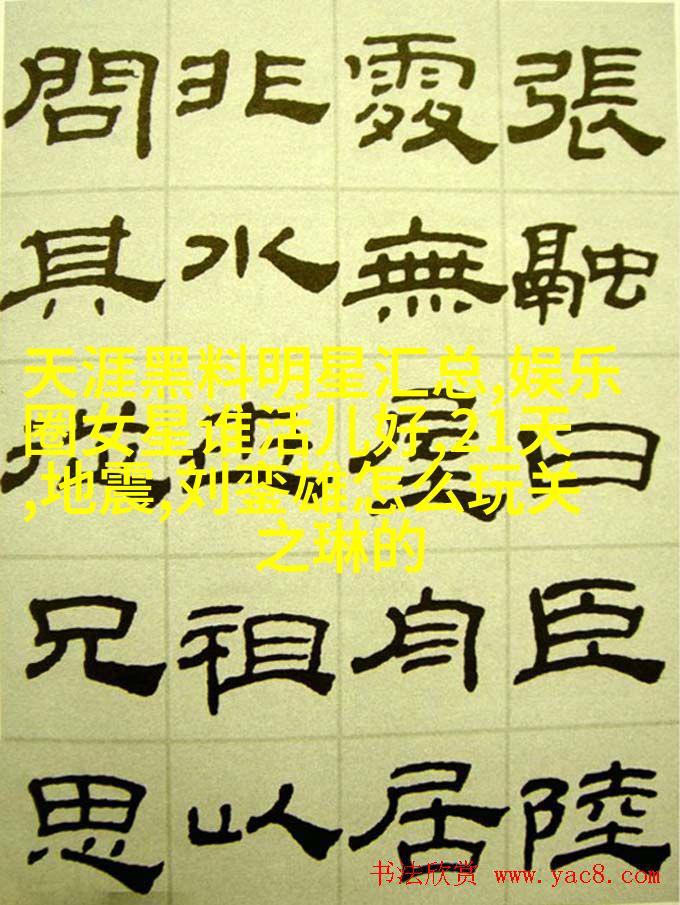 張融曰臣陸
處無屋舟居
非水世祖以
問其從兄思
天涯黑料明星汇总,娱乐
圈女星谁活儿好,21天
,地震,刘銮雄怎么玩关
之琳的
书法欣赏 www.yac8.com